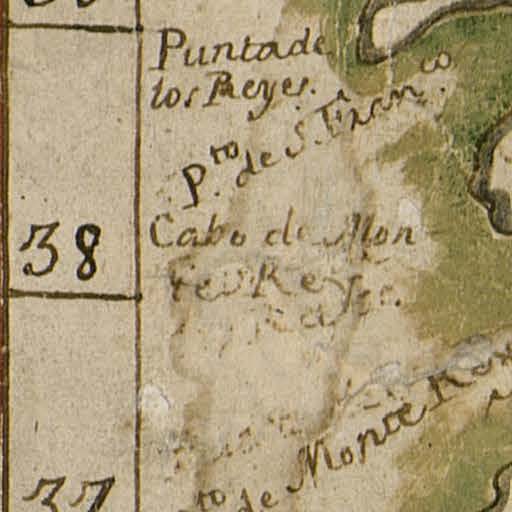 Punta de
los Reyes.
P.to de S. Fran.co
38
Cabo de Mon
tes Rey
to de Monte Rey
37